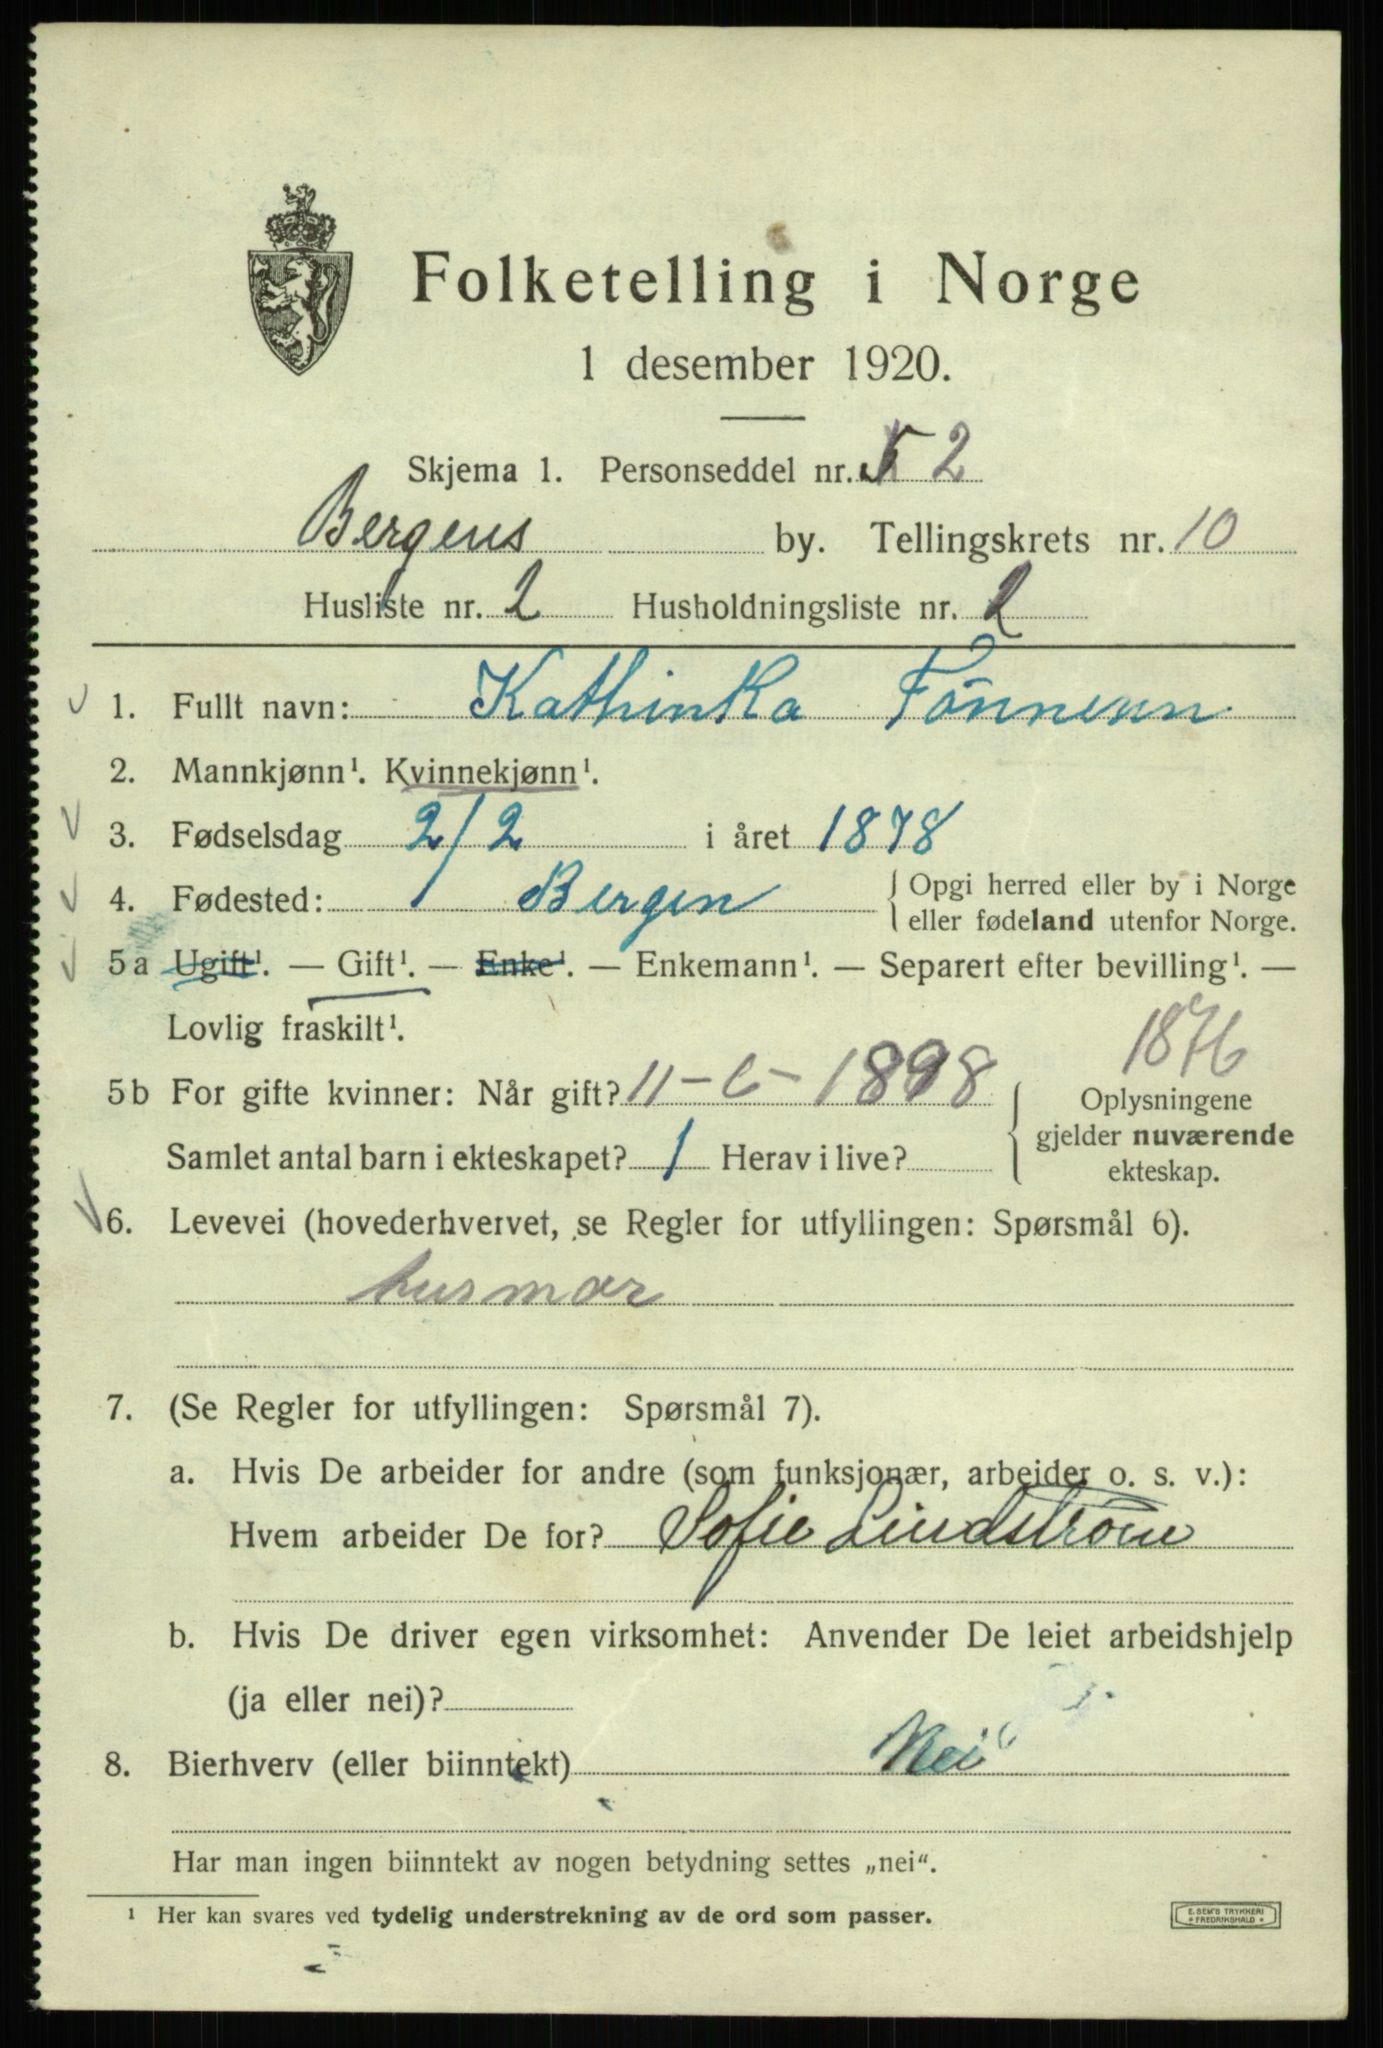 Folketelling i Norge
1 desember 1920.
Skjema 1. Personseddel nr. 2
Bergens by. Tellingskrets nr. 10
Husliste nr. 2 Husholdningsliste nr. 2
1. Fullt navn: Kathinka
2. Mannkjønn¹. Kvinnekjønn¹.
3. Fødselsdag 2/2 i året 1878
4. Fødested: Bergen { Opgi herred eller by i Norge
eller fødeland utenfor Norge.
5 a Ugift¹. — Gift¹. — Enke¹. — Enkemann¹. — Separert efter bevilling¹. —
Lovlig fraskilt¹.
1876
5 b For gifte kvinner: Når gift? 11-6-1898 Oplysningene
gjelder nuværende
Samlet antal barn i ekteskapet? 1 Herav i live? ekteskap.
6. Levevei (hovederhvervet, se Regler for utfyllingen: Spørsmål 6).
husmor
7. (Se Regler for utfyllingen: Spørsmål 7).
a. Hvis De arbeider for andre (som funksjonær, arbeider o. s. v.):
Hvem arbeider De for? Sofie Lindstrøm
b. Hvis De driver egen virksomhet: Anvender De leiet arbeidshjelp
(ja eller nei)?
8. Bierhverv (eller biinntekt) Nei
Har man ingen biinntekt av nogen betydning settes „nei“.
¹ Her kan svares ved tydelig understrekning av de ord som passer.
E. SEM'S TRYKKERI
* FREDRIKSHALD *